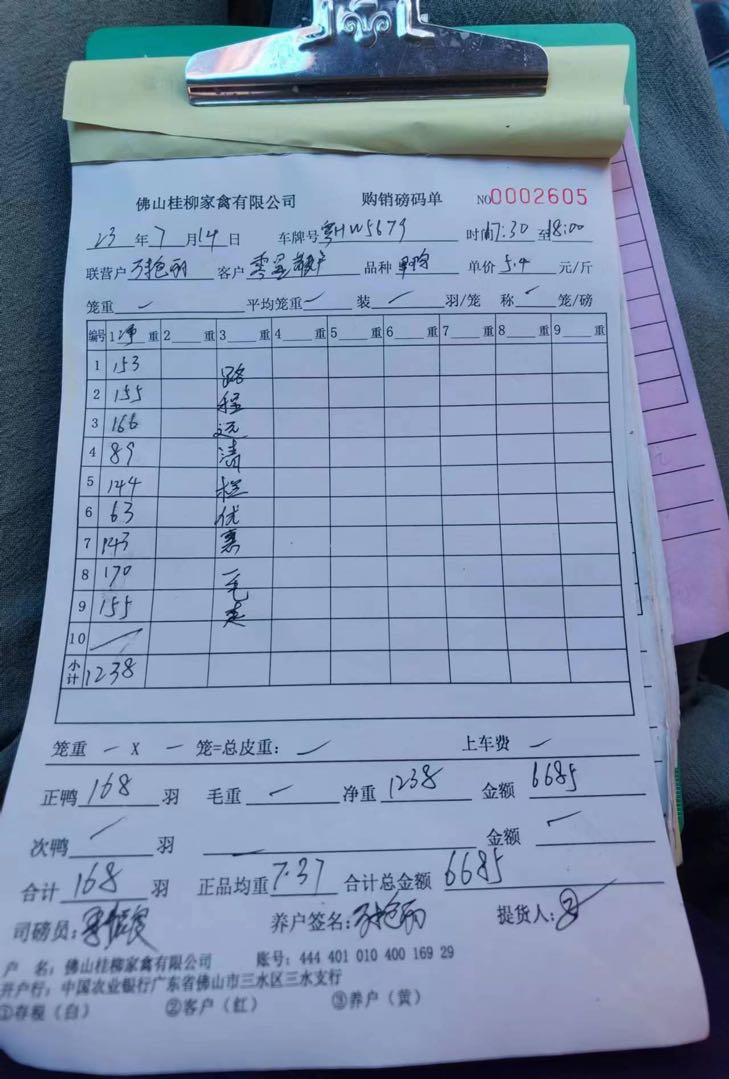 佛山桂柳家禽有限公司 购销磅码单 NO0002605
23 年 7 月 14 日 车牌号 粤HW5679 时间17:30 至 18:00
联营户 客户 零星散户 品种 单价 5.4 元/斤
笼重 — 平均笼重 — 装 — 羽/笼 称 — 笼/磅
编号 1 净 重 2 重 3 重 4 重 5 重 6 重 7 重 8 重 9 重
1 153 路
2 155 程
3 166 远
4 89 清
5 144 栏
6 63 优
7 143 惠
8 170 一毛
9 155
10 —
小计 1238
笼重 — X — 笼=总皮重: — 上车费 —
正鸭 168 羽 毛重 — 净重 1238 金额 6685
次鸭 — 羽 — 金额 —
合计 168 羽 正品均重 7.37 合计总金额 6685
司磅员: 养户签名: 提货人:
户 名: 佛山桂柳家禽有限公司 账号: 444 401 010 400 169 29
开户行: 中国农业银行广东省佛山市三水区三水支行
①存根(白) ②客户(红) ③养户(黄)